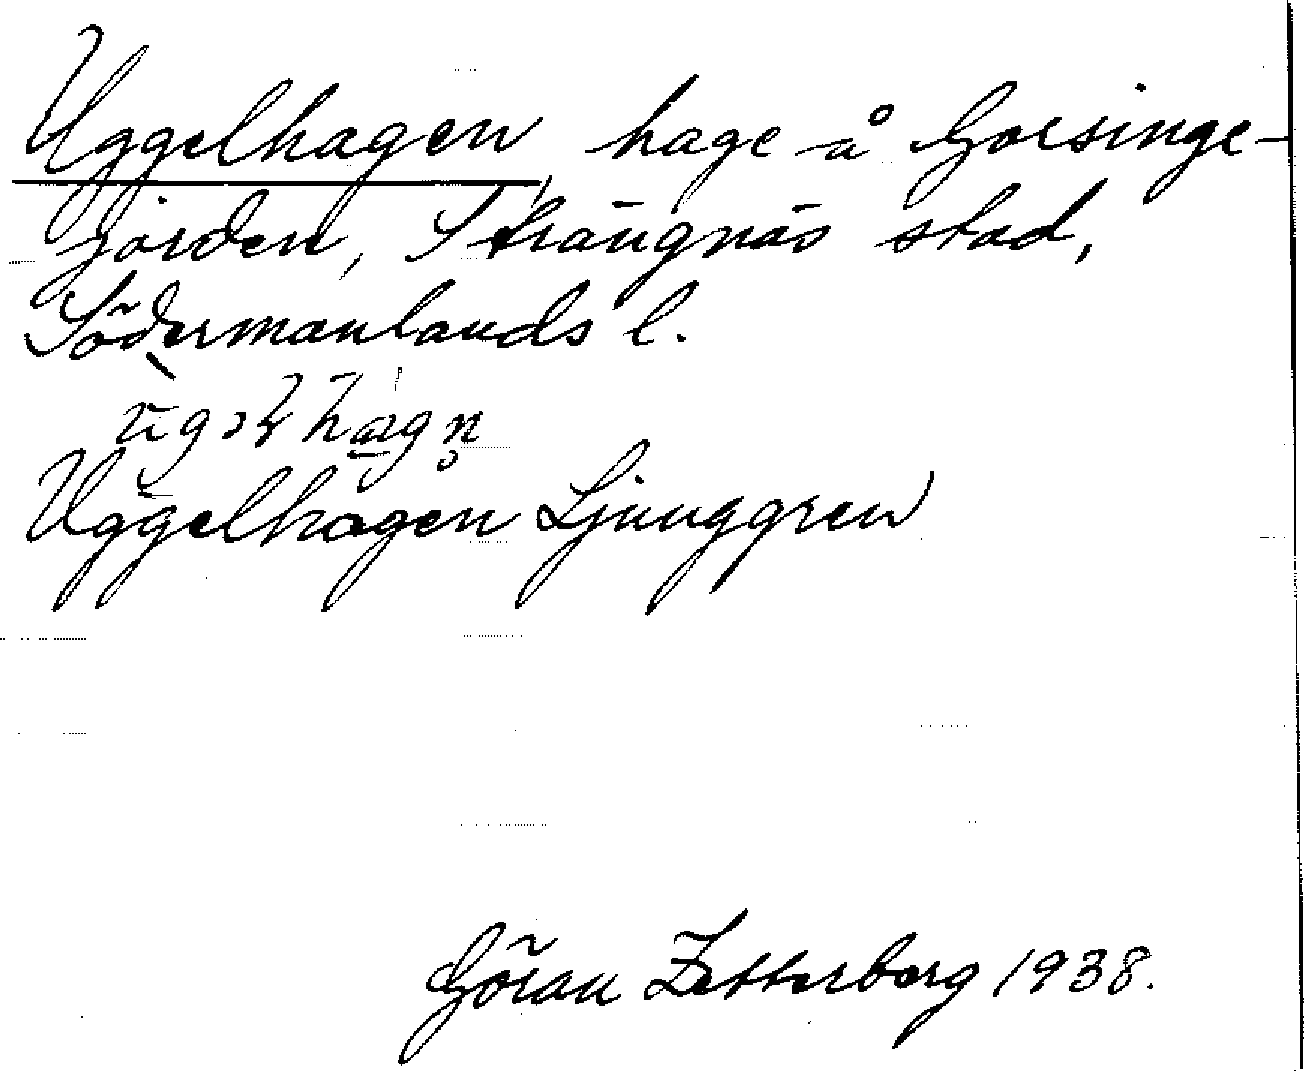 Uggelhagen, hage å Gorsinge-
gärden, Strängnäs stad,
Södermanlands l.
Uggelhagen Ljunggren
Göran Zetterberg 1938.